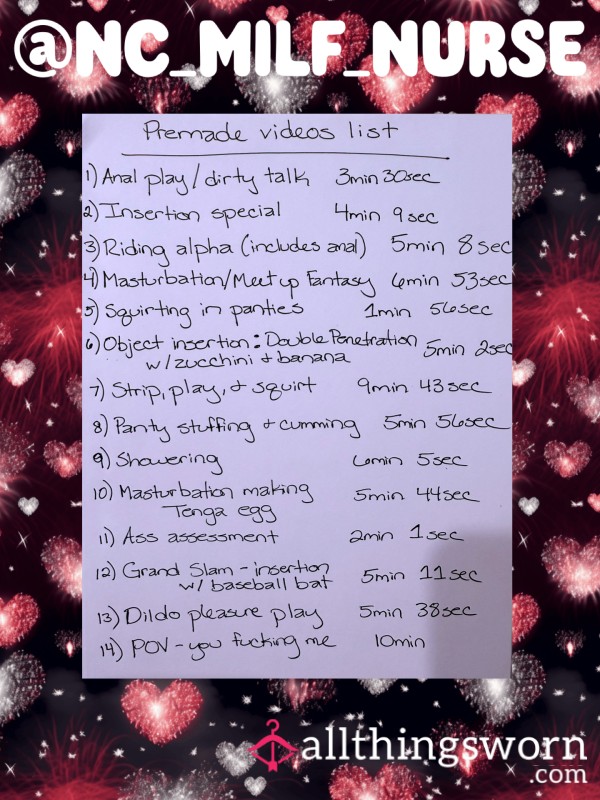 @NC_MILF_NURSE
Premade videos list
1) Anal play/dirty talk 3min 30sec
2) Insertion special 4min 9sec
3) Riding alpha (includes anal) 5min 8sec
4) Masturbation/Meetup Fantasy 6min 53sec
5) Squirting in panties 1min 56sec
6) Object insertion: Double Penetration 5min 2sec
w/zucchini + banana
7) Strip, play, + squirt 9min 43sec
8) Panty stuffing + cumming 5min 56sec
9) Showering 6min 5sec
10) Masturbation making 5min 44sec
Tenga egg
11) Ass assessment 2min 1sec
12) Grand Slam - insertion 5min 11sec
w/ baseball bat
13) Dildo pleasure play 5min 38sec
14) POV - you fucking me 10min
allthingsworn
.com